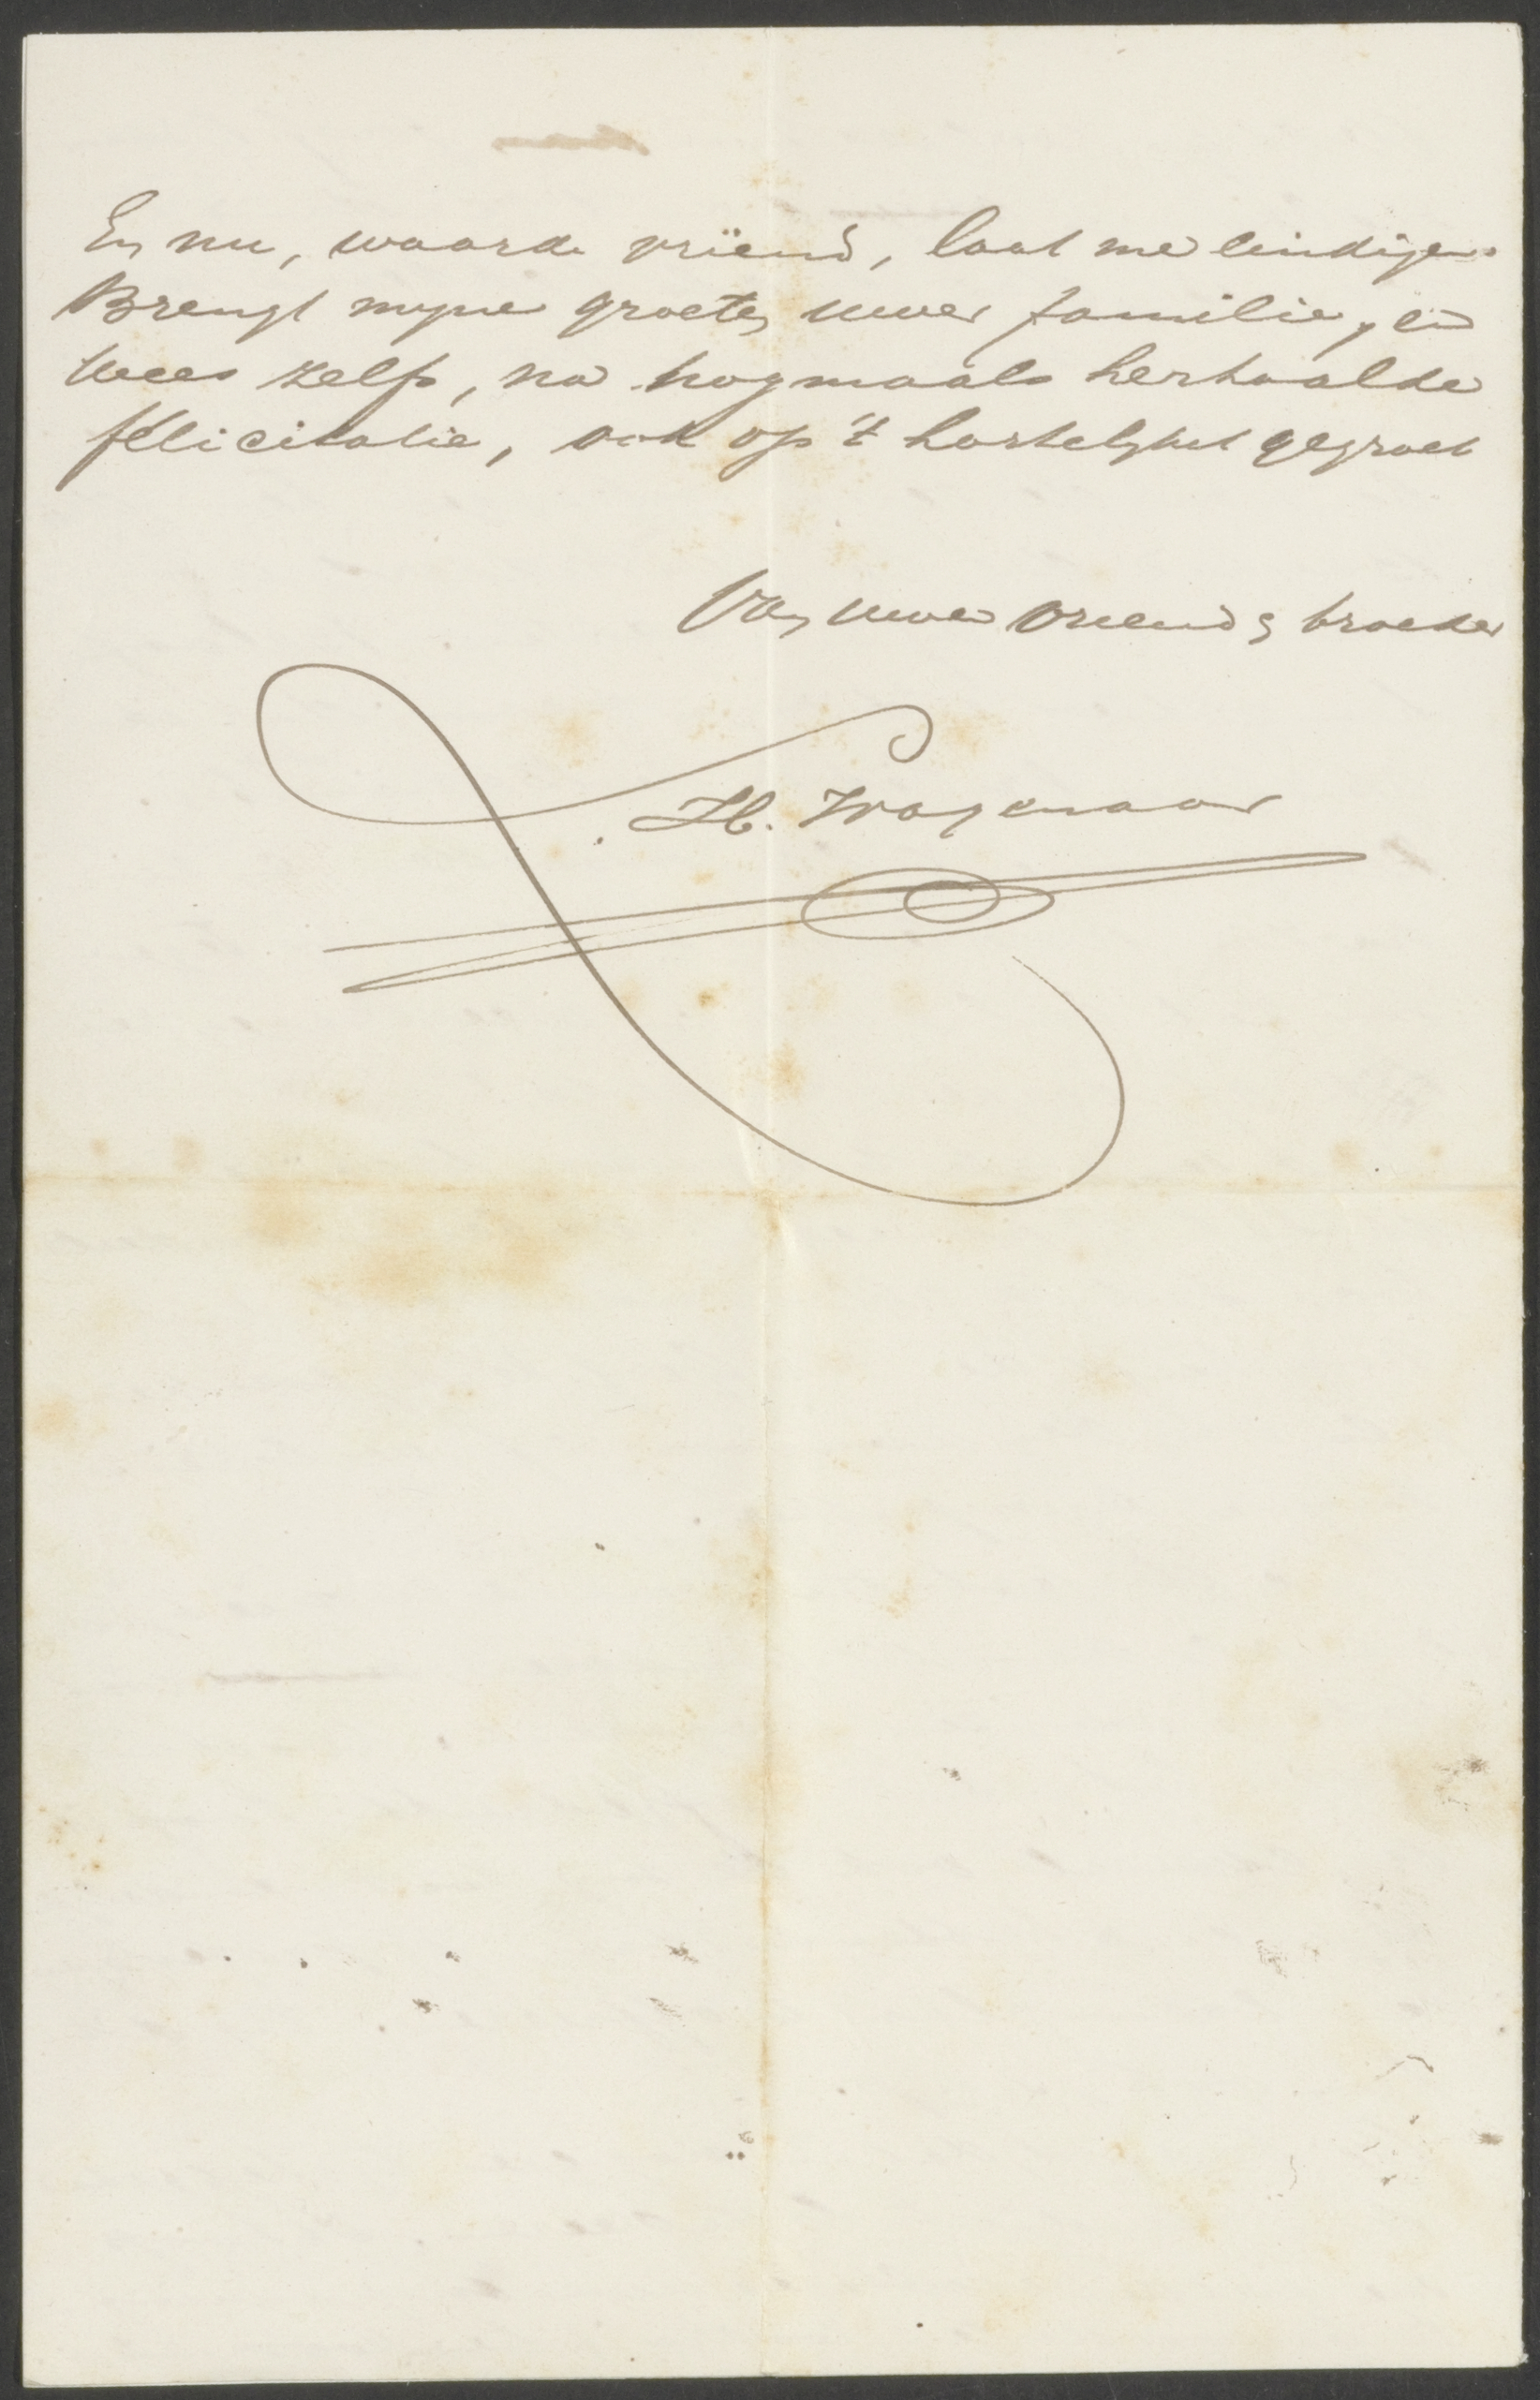 En nu, waarde vriend, laat me eindigen.
Brengt myne groeten uwer familie, en
wees zelf, na nogmaals herhaalde
felicitatie, ook op 't hartelykst gegroet
Van uwen vriend & broeder
H. Wagenaar